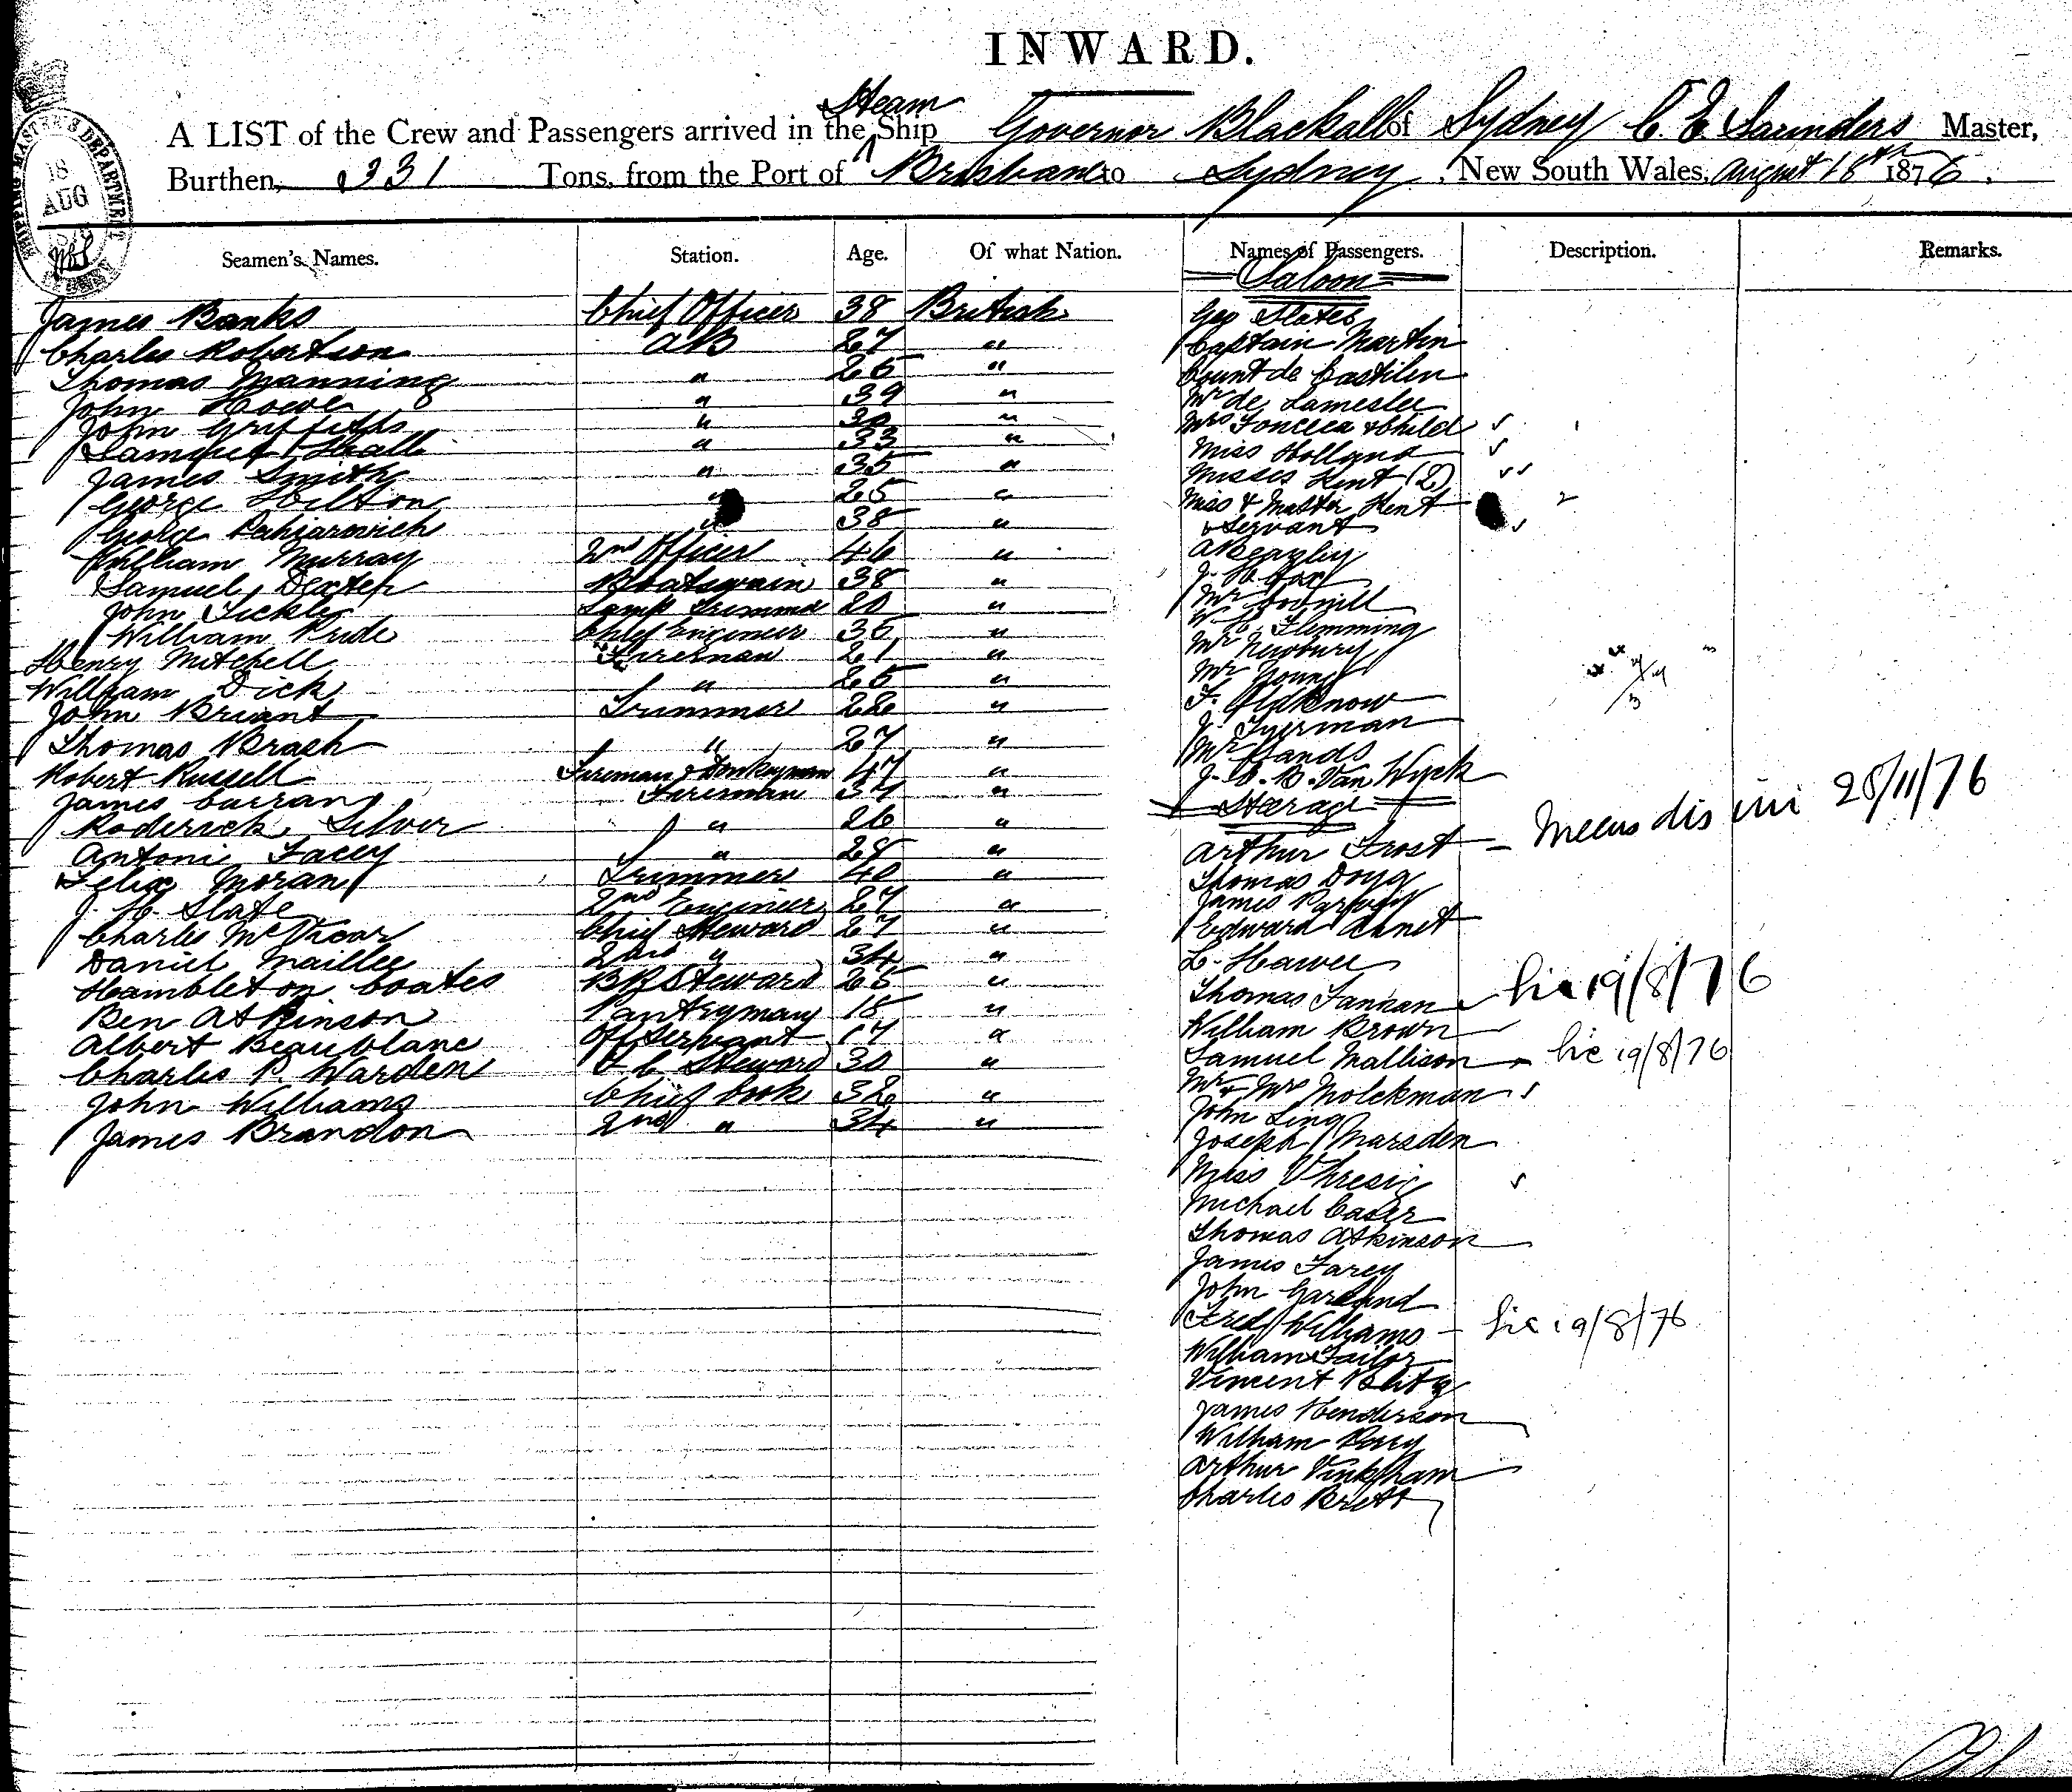 INWARD.
Steam
A LIST of the Crew and Passengers arrived in the Ship Governor Blackall of Sydney C. E. Saunders Master,
Burthen, 331 Tons, from the Port of Brisbane to Sydney, New South Wales, August 18th 1876.
SHIPPING MASTER'S DEPARTMENT
18
AUG
Seamen's Names. Station. Age. Of what Nation. Names of Passengers. Description. Remarks.
Saloon
James Banks Chief Officer 38 British Geo Slater
Charles Robertson AB 27 " Captain Martin
Thomas Manning " 26 " Count de Castilen
John Howe " 39 " Mr de
John Griffiths " 30 " Mrs Fonceca & Child
Samuel Hall " 33 " Miss Holland
James Smith " 35 " Misses Kent (2)
George Hilton " 25 " Miss & Master Kent
George " 38 " & Servant
William Murray 2nd Officer 46 " A Beazley
Samuel Dexter Boatswain 38 " J. H.
John Tickle Lamp Trimmer 20 " Mr
William Pride Chief Engineer 35 " W. C. Flemming
Henry Mitchell Fireman 21 " Mr Newbury
William Dick " 25 " Mr Young
John Briant Trimmer 22 " F. Oldknow
Thomas Brash " 27 " J. Tyerman
Robert Russell Fireman & Donkeyman 47 " Mr Hands
James Curran Fireman 37 " J. W. B. Van Wyck
Steerage
Roderick Silver " 26 "
Antoni Facey " 28 " Arthur Frost 28/11/76
Felix Moran Trimmer 40 " Thomas Doyg
J. H. Slate 2nd Engineer 27 " James
Charles McVicar Chief Steward 27 " Edward
Daniel Maillee 2nd " 34 " L. Hawer
Hambleton Coates BR Steward 25 " Thomas Fannan 19/8/76
Ben Atkinson Pantryman 18 " William Brown
Albert Beaublanc Off Servant 17 " Samuel Mallison 19/8/76
Charles P. Warden F C Steward 30 " Mr & Mrs Molckman
John Williams Chief Cook 32 " John Ling
James Brandon 2nd " 34 " Joseph Marsden
Miss
Michael Caser
Thomas Atkinson
James Farey
John Garland
Fred Williams 19/8/76
William Tailor
Vincent
James Henderson
William Perry
Arthur
Charles Brett